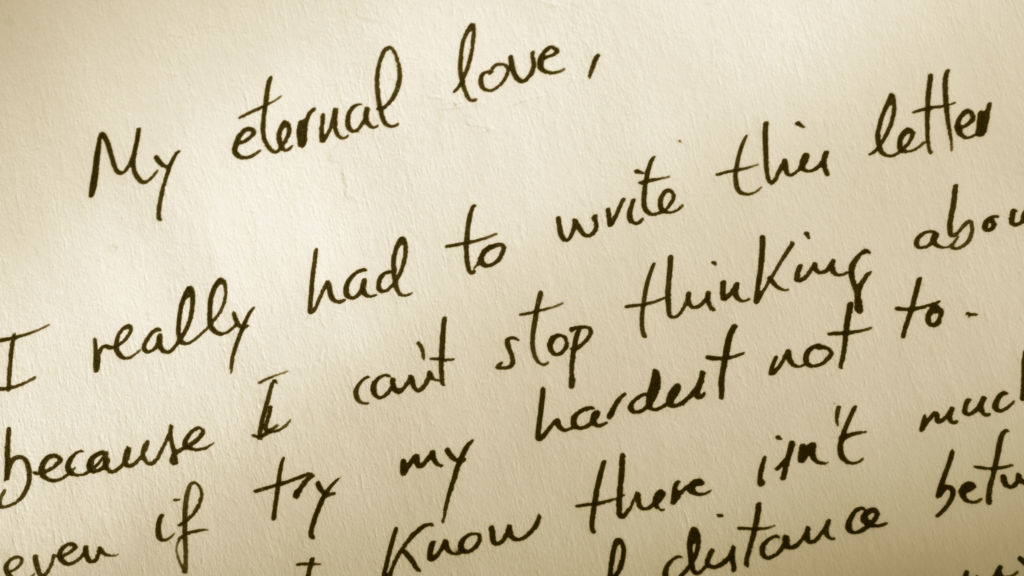 My eternal love,
I really had to write this letter
because I can't stop thinking abou
even if try my hardest not to.
I know there isn't much
distance betw